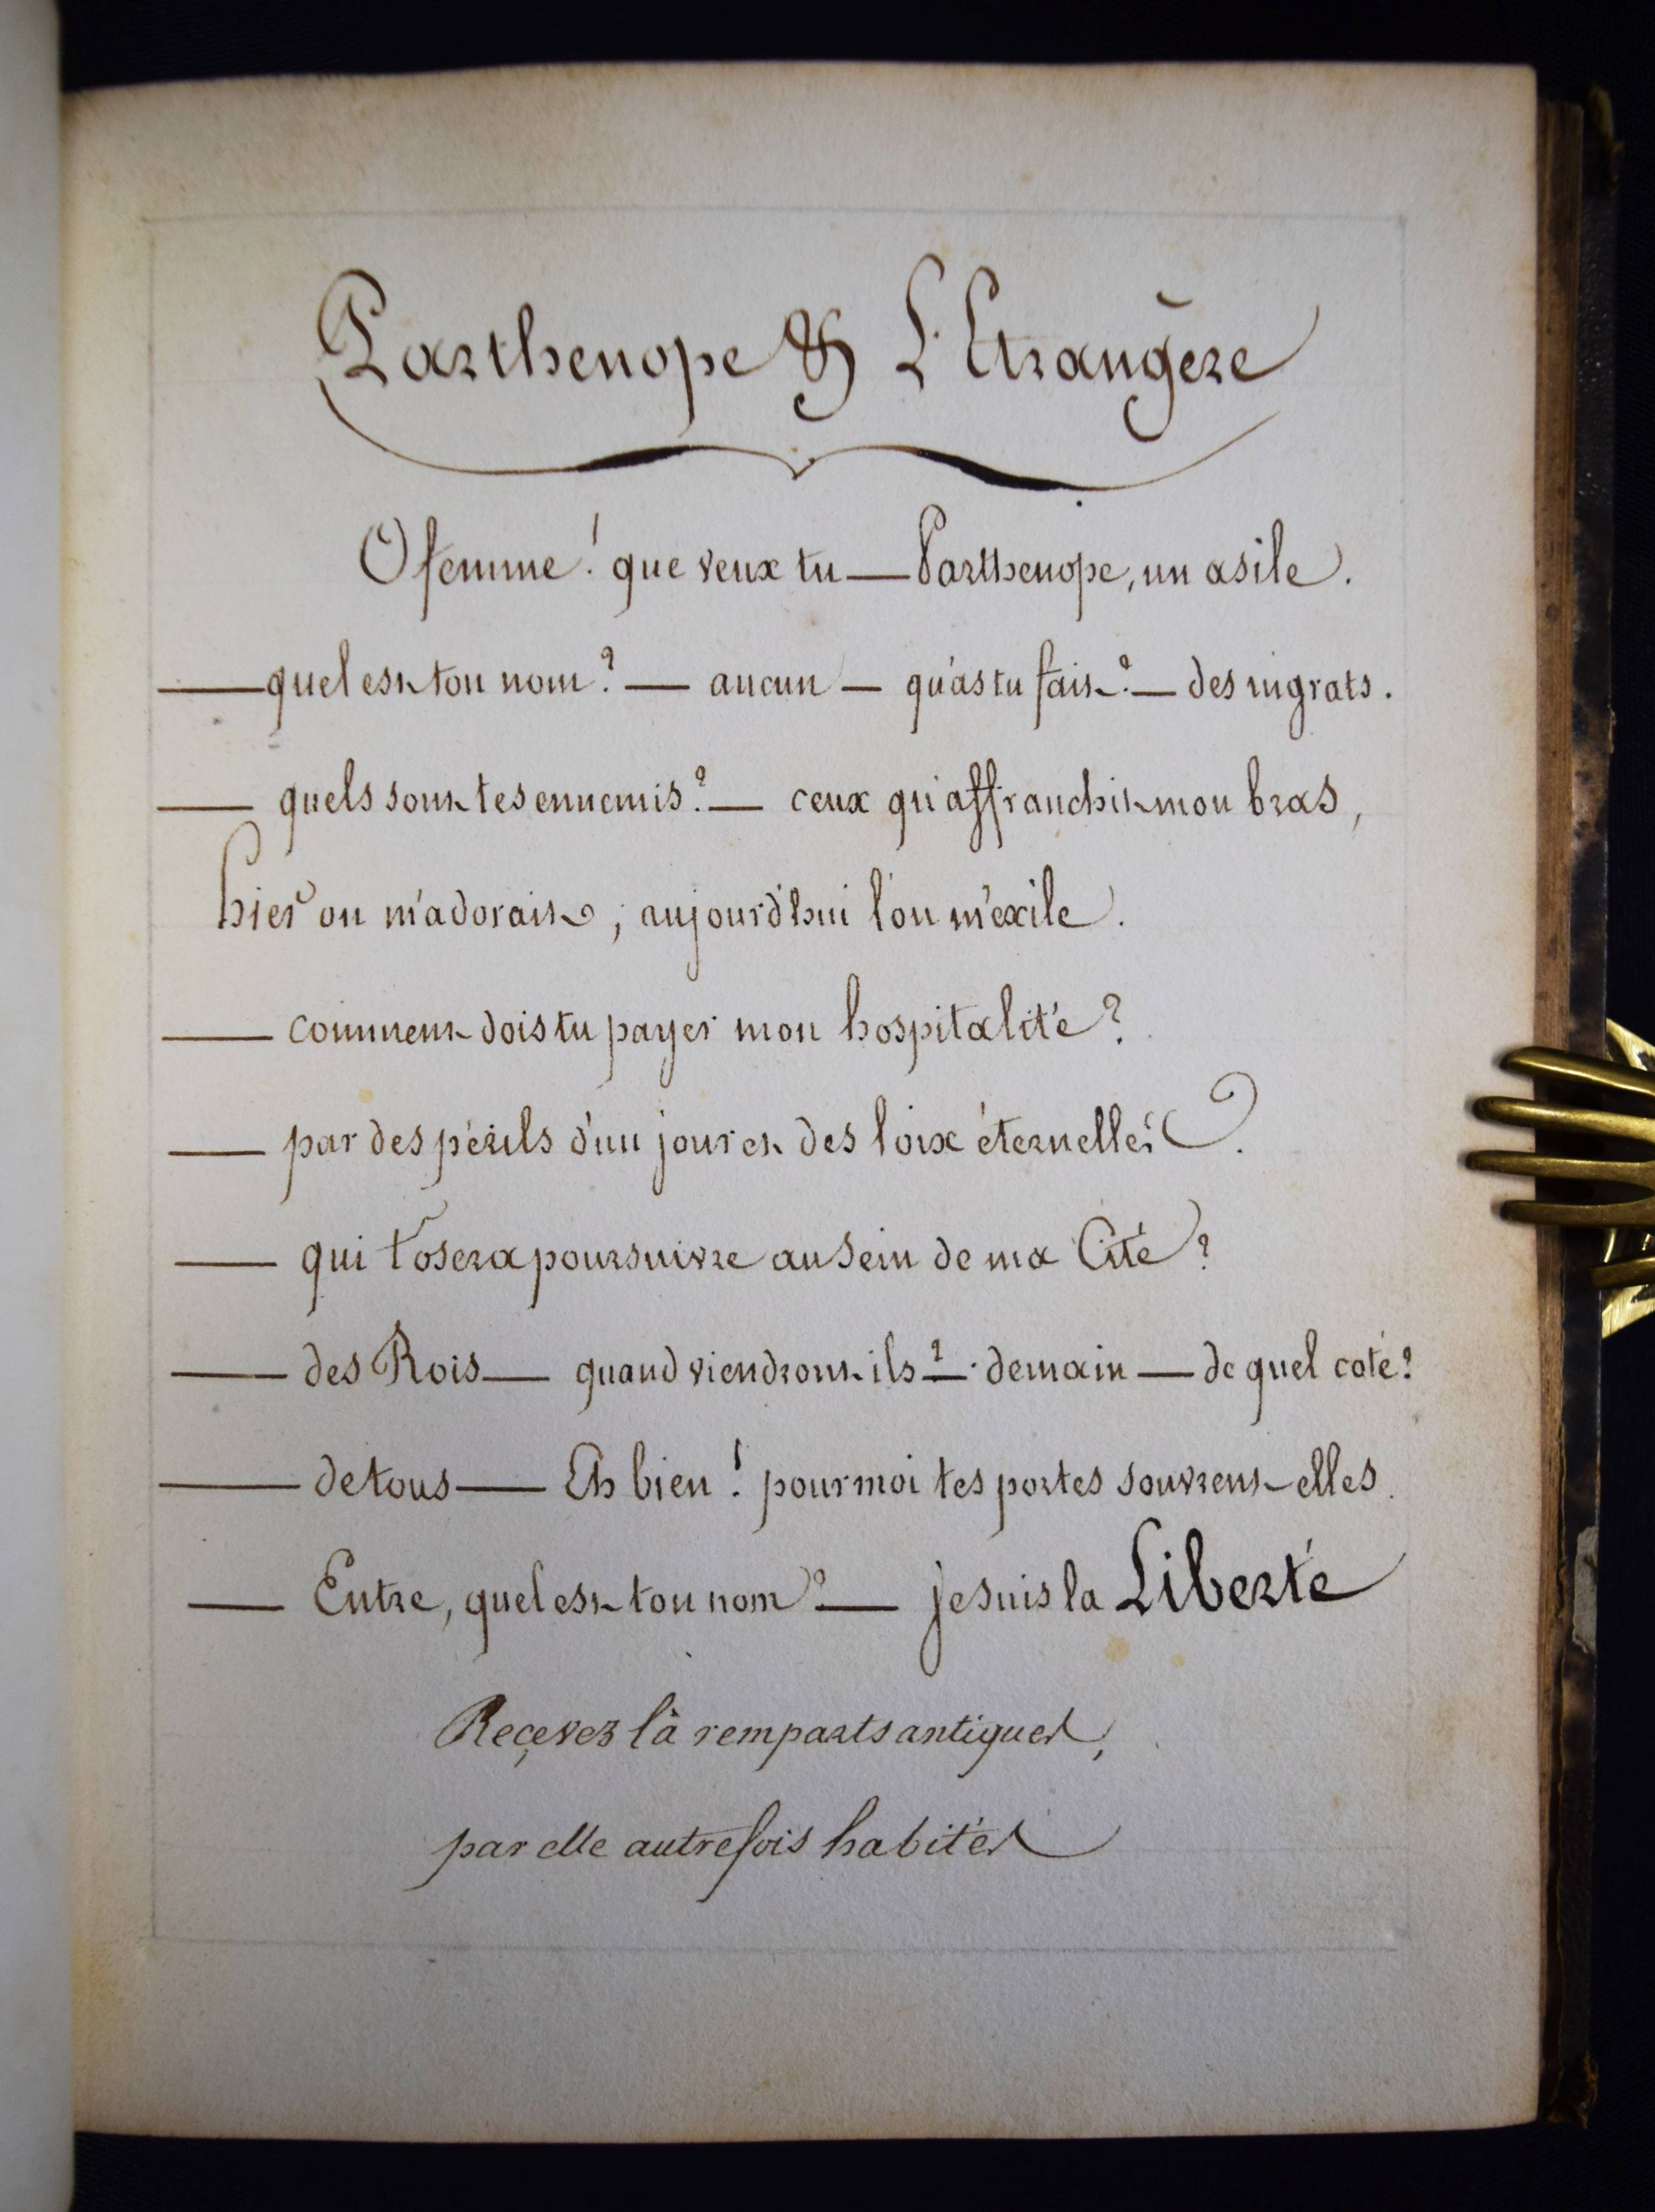 Parthenope & L'Etrangère
O femme ! que veux tu — Parthenope, un asile.
— quel est ton nom ? — aucun — qu'as tu fait ? — des ingrats.
— quels sont tes ennemis ? — ceux qu'affranchit mon bras,
hier on m'adorait, aujourd'hui l'on m'exile.
— comment dois tu payer mon hospitalité ?
— par des périls d'un jour et des loix éternelles.
— qui t'osera poursuivre au sein de ma Cité ?
— des Rois — quand viendront ils ? — demain — de quel coté ?
— de tous — Eh bien ! pour moi tes portes souvrent-elles.
— Entre, quel est ton nom ? — je suis la Liberté
Reçevez là remparts antiques,
par elle autrefois habités